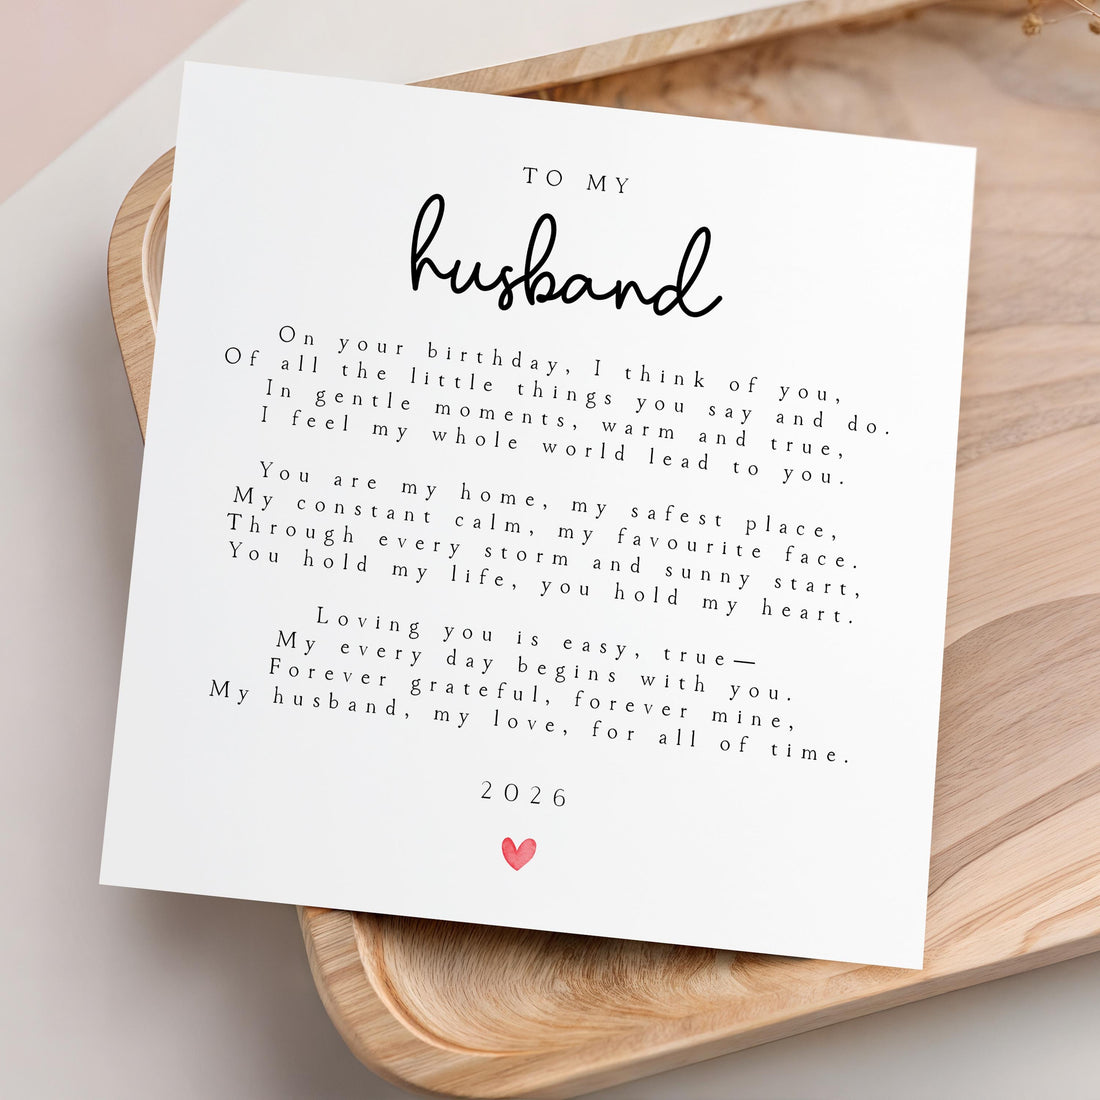 TO MY
husband
On your birthday, I think of you,
Of all the little things you say and do.
In gentle moments, warm and true,
I feel my whole world lead to you.
You are my home, my safest place,
My constant calm, my favourite face.
Through every storm and sunny start,
You hold my life, you hold my heart.
Loving you is easy, true—
My every day begins with you.
Forever grateful, forever mine,
My husband, my love, for all of time.
2026